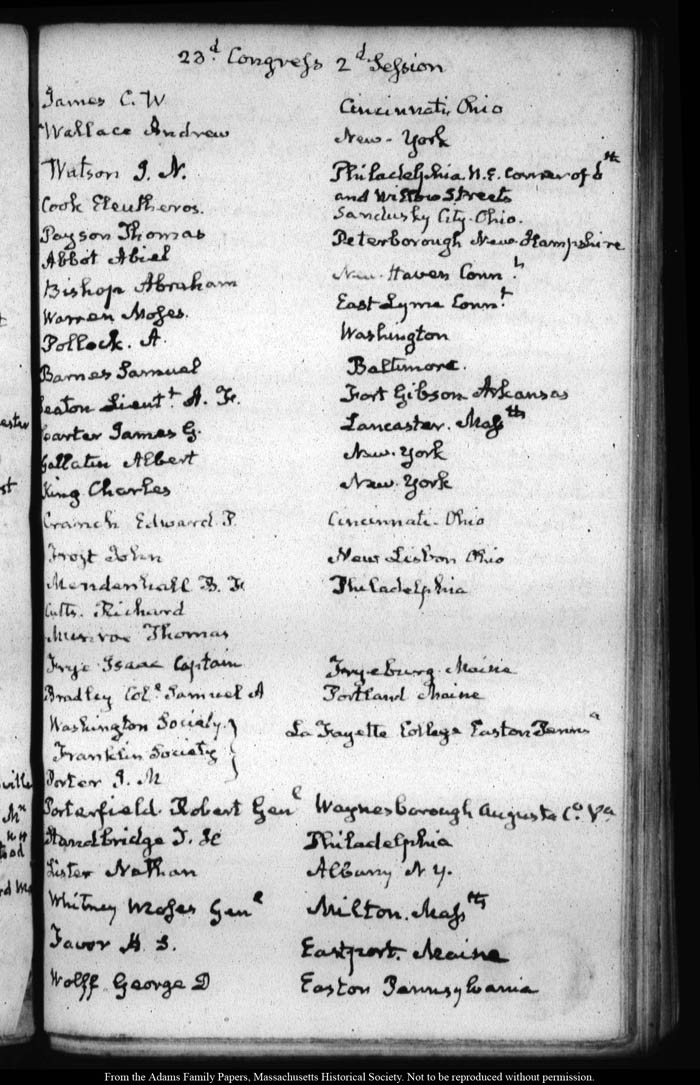 23.d Congress 2.d Session
James C. W Cincinnati, Ohio
Wallace Andrew New-York
Watson J. N. Philadelphia N.E. corner of 6th
and Willow Streets
Cook Eleutheros. Sandusky City. Ohio.
Payson Thomas Peterborough New Hampshire
Abbot Abiel
Bishop Abraham New-Haven Conn.t
Warren Moses. East Lyme Conn.t
Pollock. A. Washington
Barnes Samuel Baltimore.
Seaton Lieut.t A. F. Fort Gibson Arkansas
Carter James G. Lancaster. Massts
Gallatin Albert New-York
King Charles New-York
Cranch Edward P. Cincinnati. Ohio
Frost John New Lisbon Ohio
Mendenhall B. F. Philadelphia
Cutts. Richard
Munroe Thomas
Frye Isaac Captain Fryeburg Maine
Bradley Col.l Samuel A Portland Maine
Washington Society. La Fayette College Easton Penns.a
Franklin Society
Porter J. M
Porterfield. Robert Gen.l Waynesborough Augusta C.o V.a
Handbridge Philadelphia
Lister Nathan Albany N. Y.
Whitney Moses Gen.l Milton. Massts
Favor H. S. Eastport. Maine
Wolff George D Easton Pennsylvania
From the Adams Family Papers, Massachusetts Historical Society. Not to be reproduced without permission.